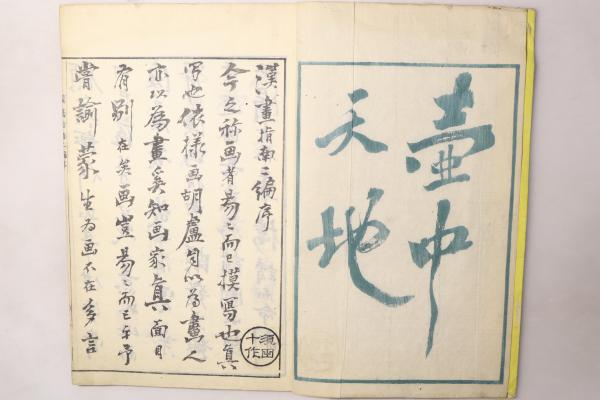 壷中
天地
漢畫指南二編序
今之称画者易〻而已摸寫也真
写也依樣画胡盧自以為畫人
亦以為畫奚知画家真面目
有別在矣画豈易〻而已乎予
嘗諭蒙生為画不在多言